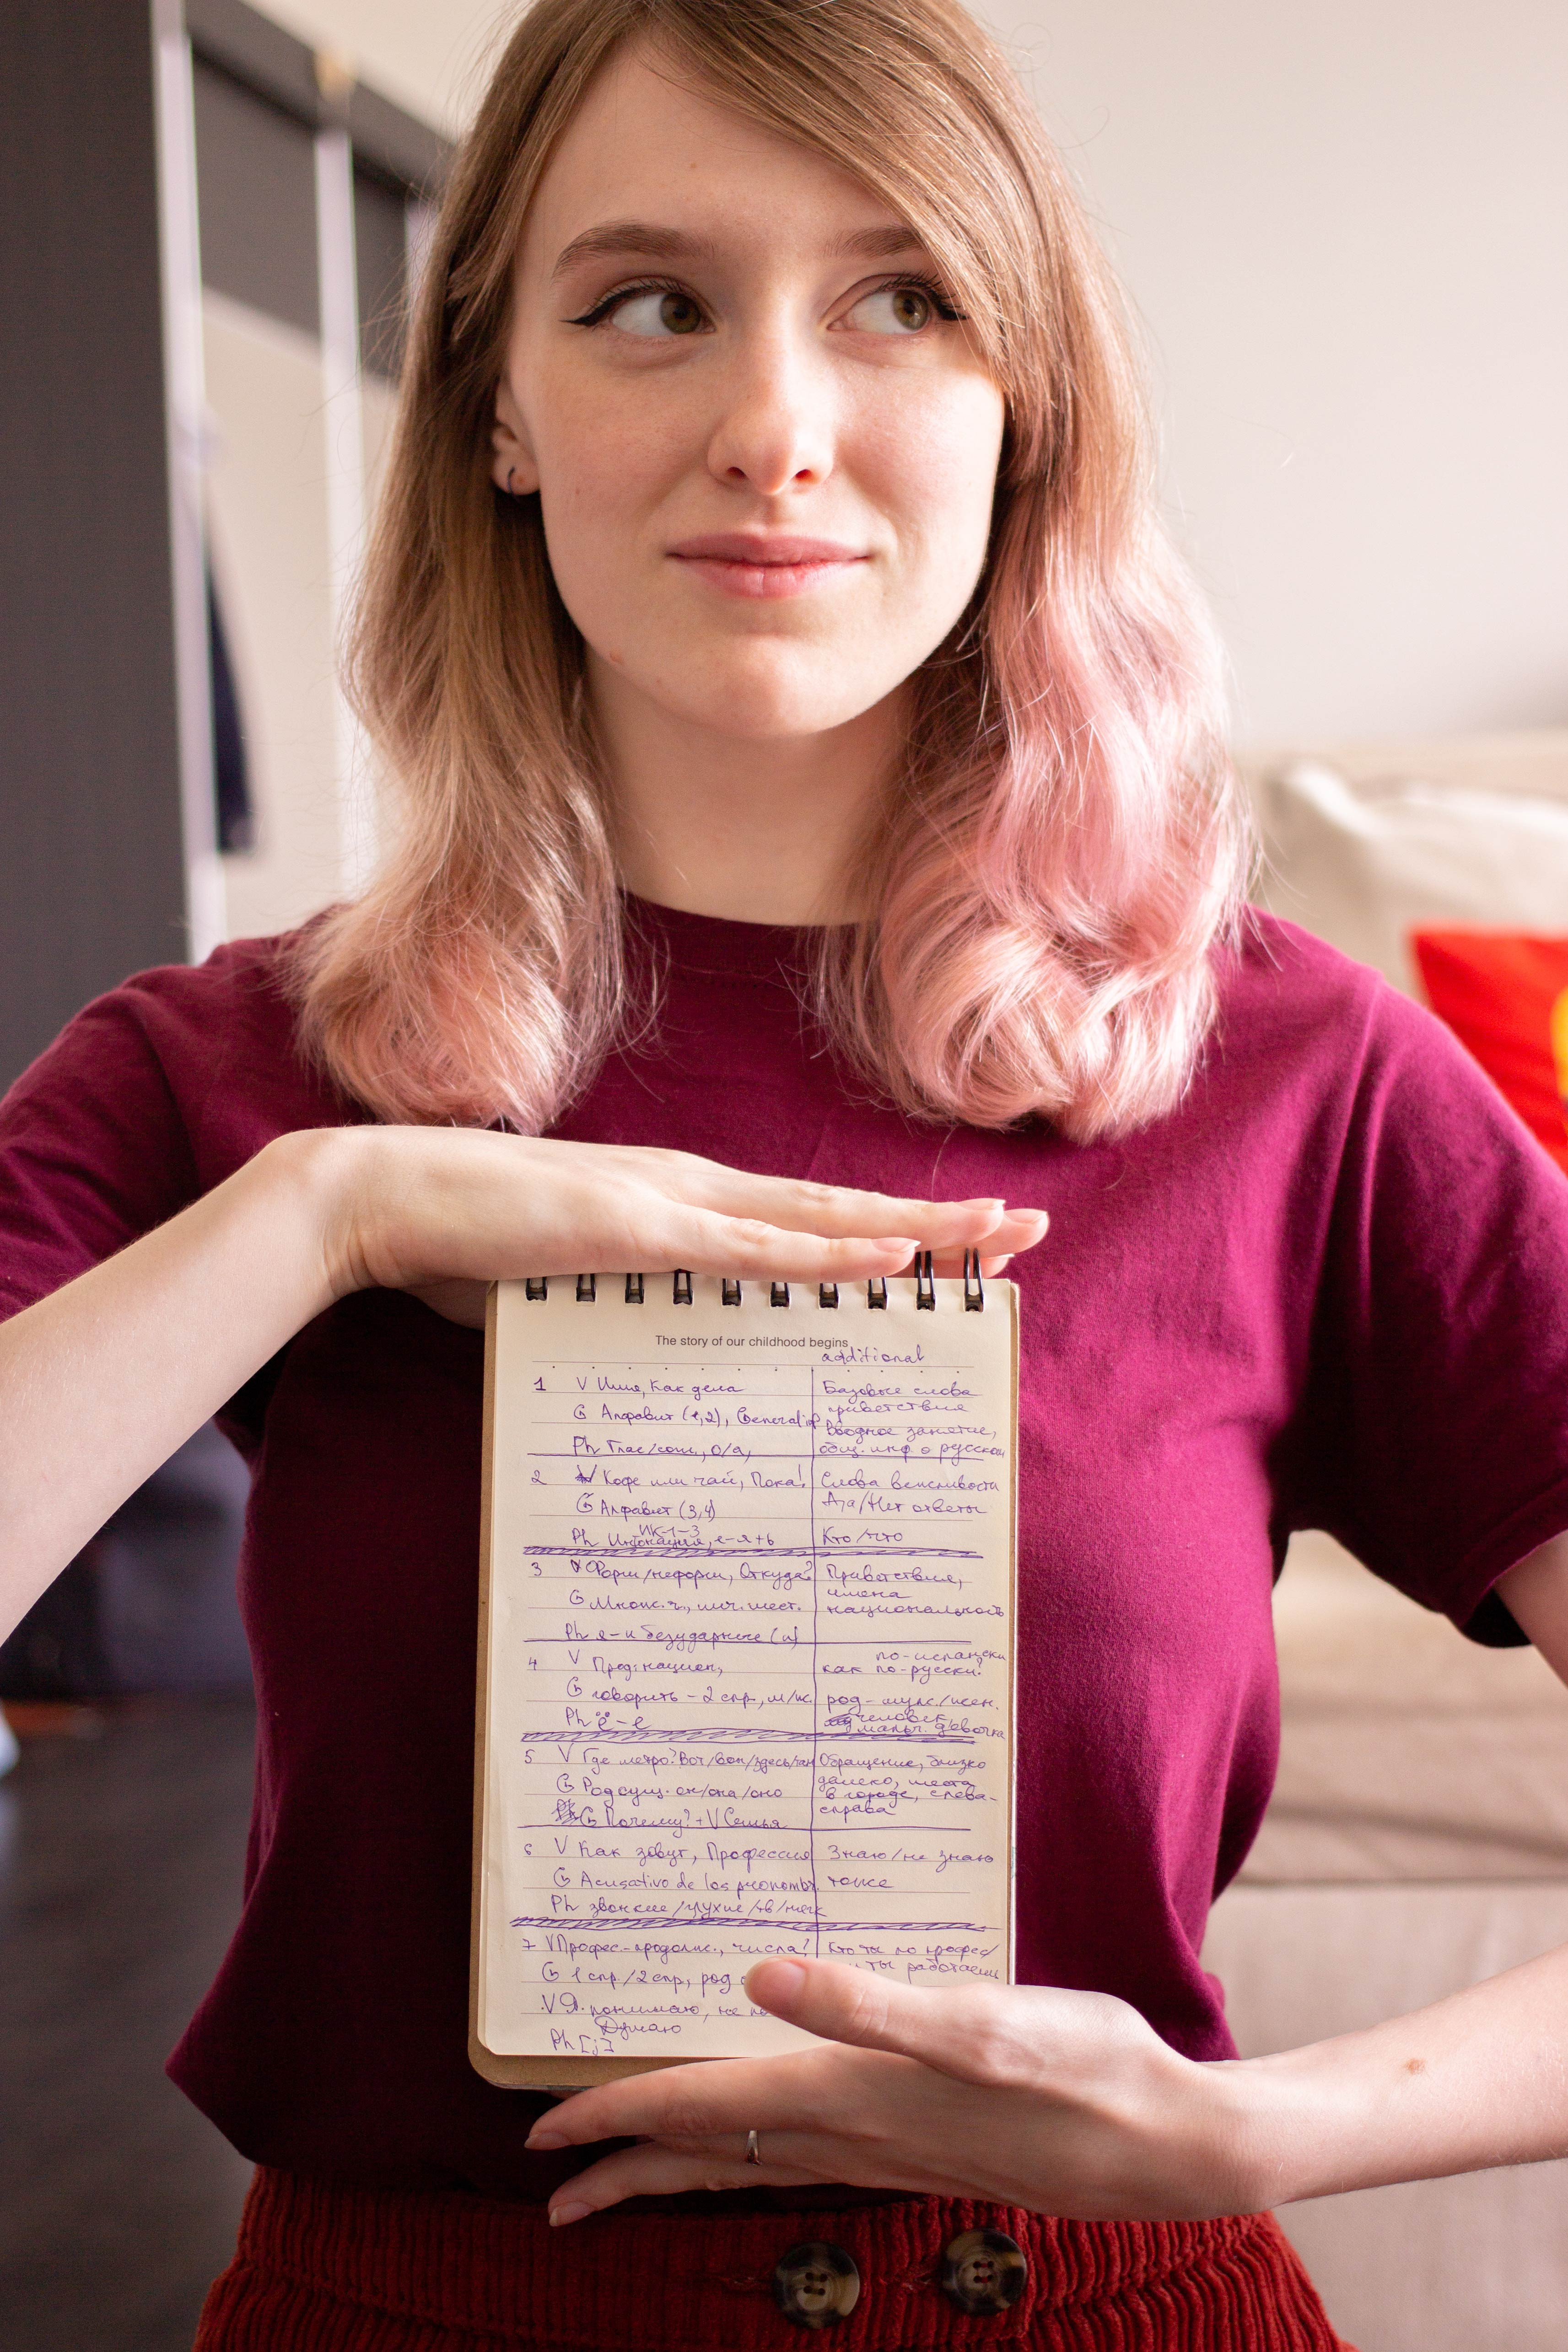 The story of our childhood begins
additional
1 V Имя, Как дела Базовые слова
приветствия
G Алфавит (1,2), General inf Вводное занятие,
Ph Глас/согл, о/а, общ. инф о русском
2 V Кофе или чай, Пока! Слова вежливости
G Алфавит (3,4) Да/Нет ответы
ИК-1-3
Ph Интонация, е-я+ь Кто/что
3 V Форм/неформ, Откуда? Приветствия,
имена
G Множ.ч., лич. мест. национальность
Ph я-и безударные (и)
по-испански
4 V Пред: национ, как по-русски?
G говорить - 2 спр, м/ж. род - муж./жен.
Ph ё-е человек,
мальч. девочка
5 V Где метро? Вот/вон/здесь/там Обращение, близко
далеко, места
G Род сущ. он/она/оно в городе, слева-
справа
G Почему? + V Семья
6 V Как зовут, Профессия Знаю/не знаю
G Acusativo de los pronombr. тоже
Ph звонкие/глухие/тв/мягк
7 V Профес.-продолж., числа! Кто ты по профес/
G 1 спр./2 спр, род ты работаешь
V Я понимаю, не
Думаю
Ph [j]